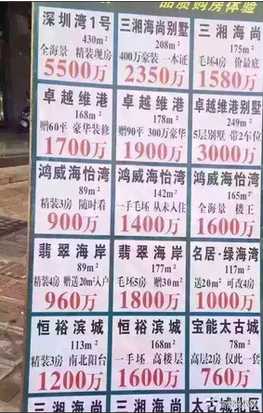 品质购房体验
深圳湾1号
430m²
全海景 精装现房
5500万
三湘海尚别墅
208m²
400万豪装 一本证
2350万
三湘海尚
175m²
毛坯4房 价最底
1580万
卓越维港
168m²
赠60平 豪华装修
1700万
卓越维港
178m²
赠90平 300万豪装
1900万
卓越维港别墅
249m²
5层别墅 带2车位
3000万
鸿威海怡湾
89m²
精装3房 随时看
900万
鸿威海怡湾
142m²
一手毛坯 从未入住
1400万
鸿威海怡湾
165m²
全海景 楼王
1600万
翡翠海岸
89m²
精装4房 赠送20m²入户
960万
翡翠海岸
177m²
毛坯5房 赠30m²
1800万
名居·绿海湾
117m²
送20m² 可改4房
1000万
恒裕滨城
113m²
精装3房 南北阳台
1200万
恒裕滨城
168m²
一手毛坯 高楼层
1600万
宝能太古城
78m²
高层2房 仅此一套
760万